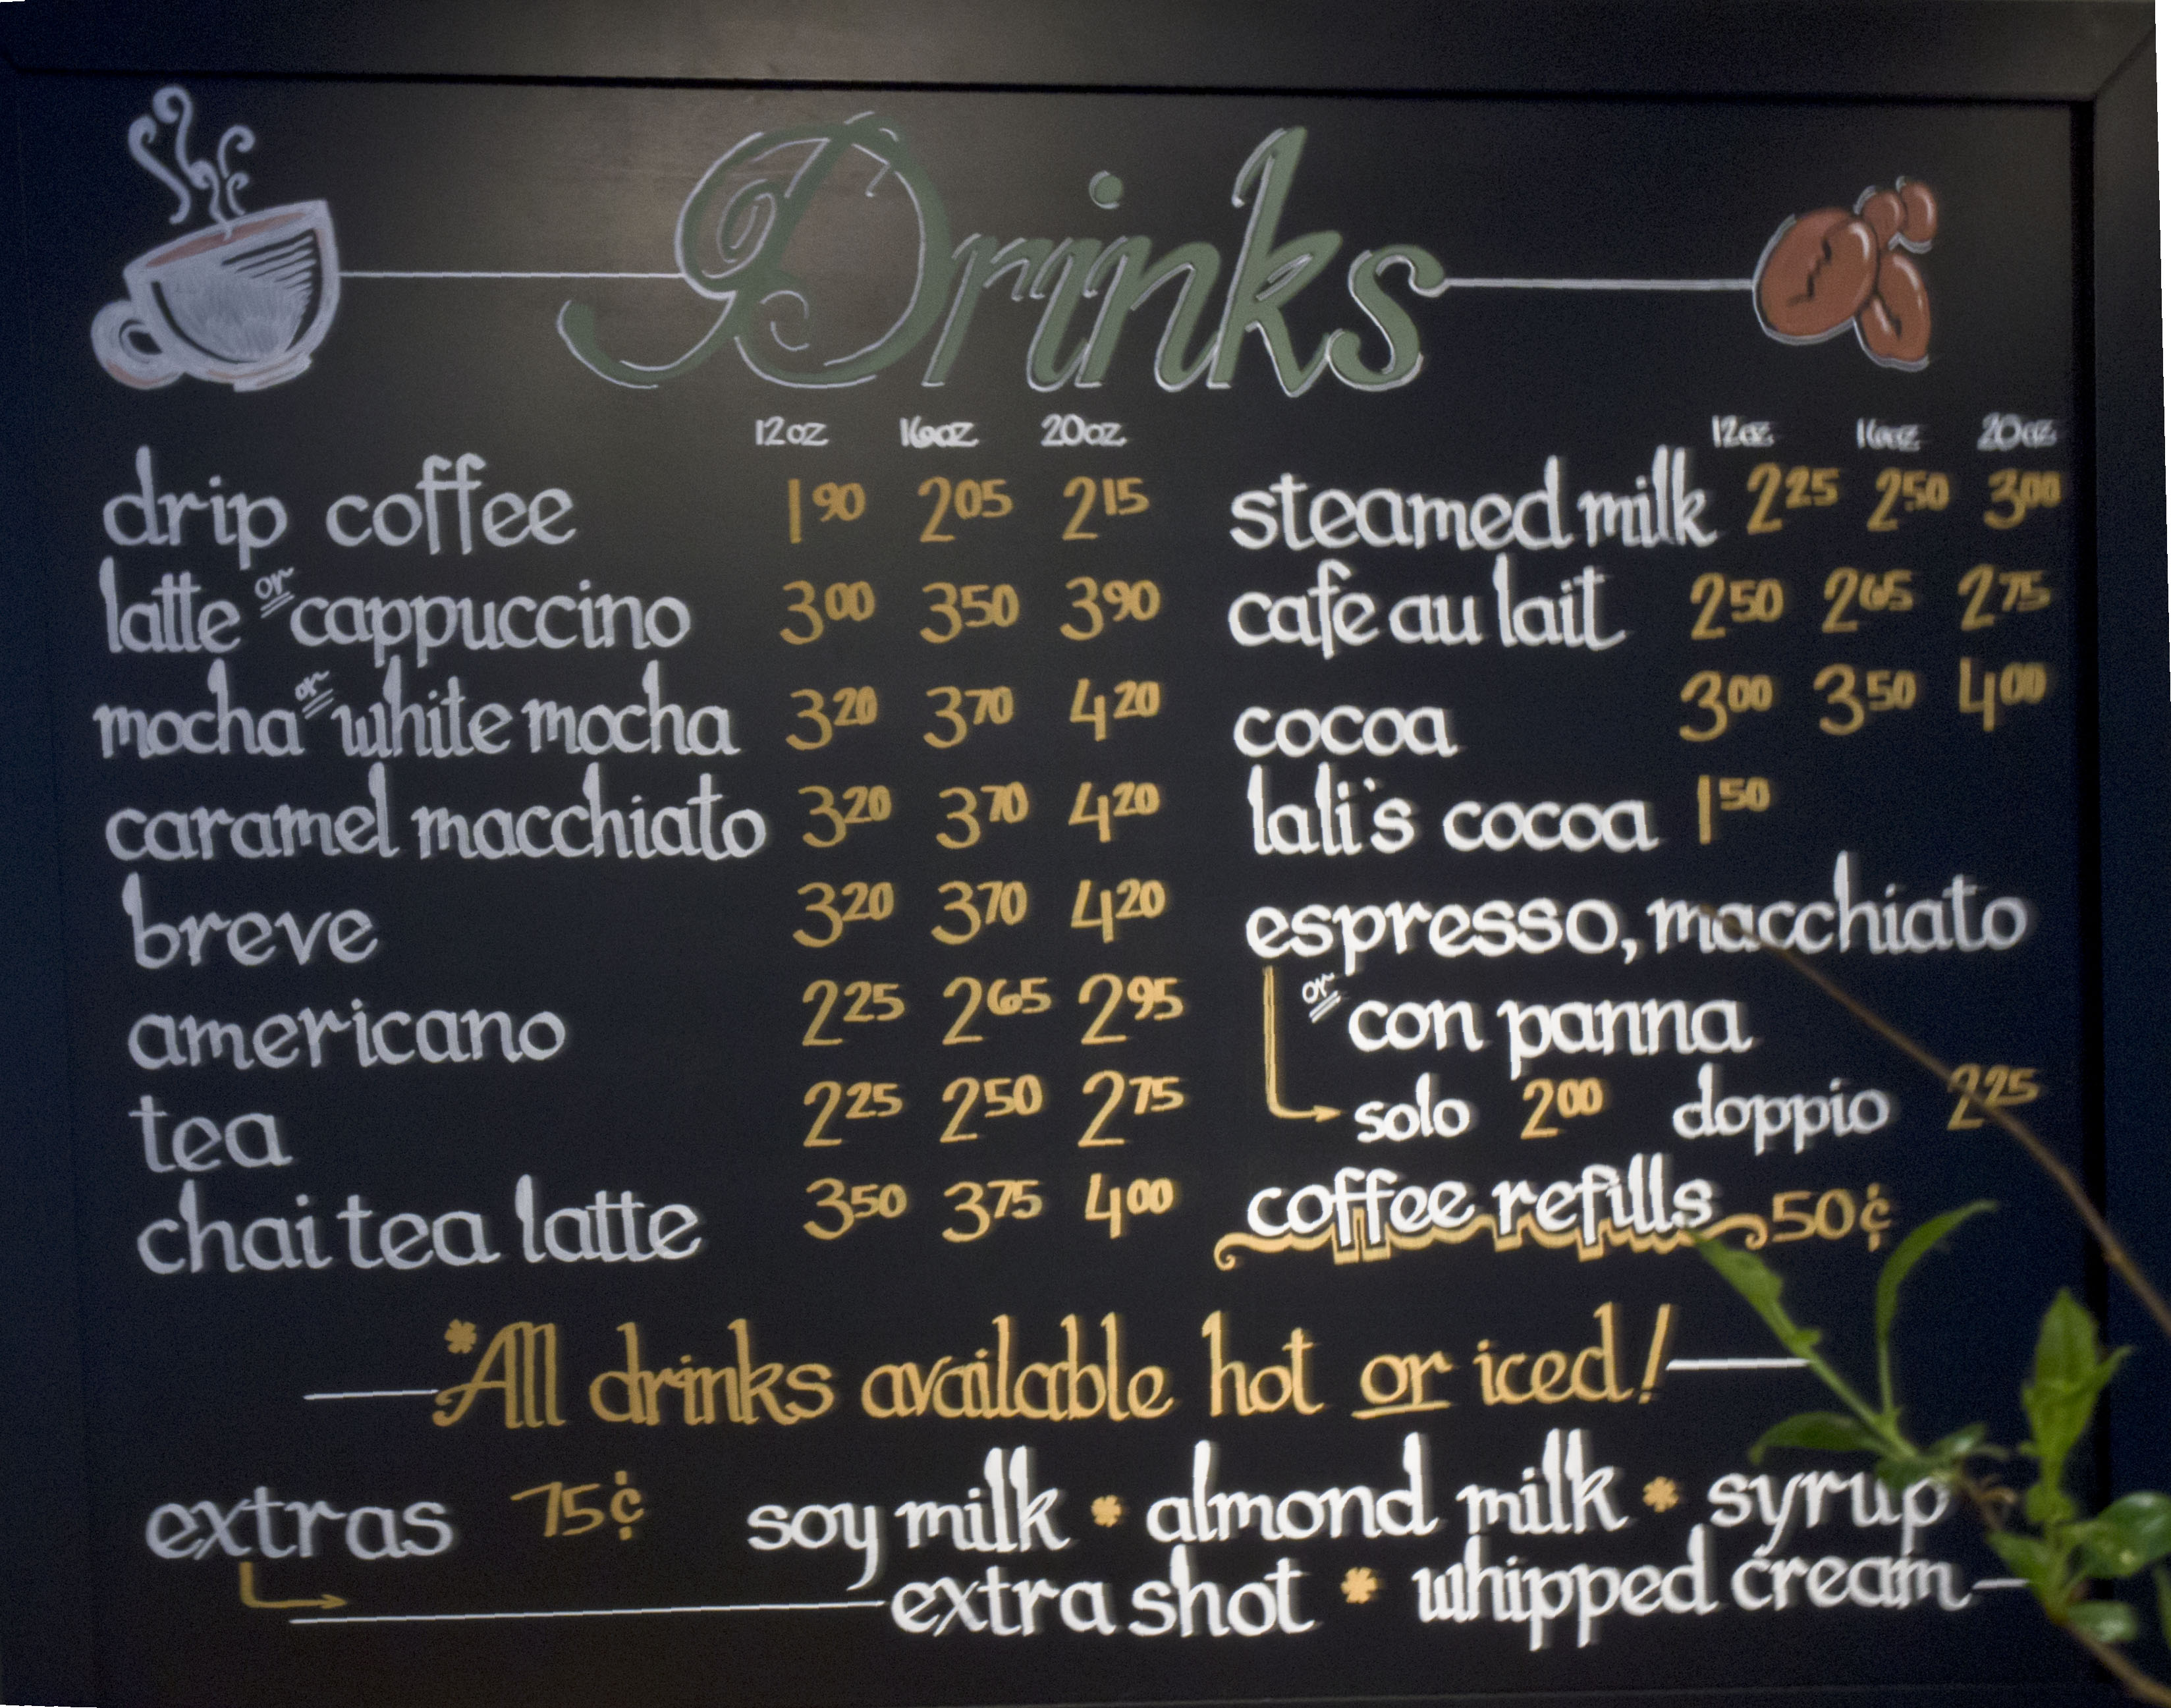 Drinks
12oz 16oz 20oz
drip coffee 1 90 2 05 2 15
latte or cappuccino 3 00 3 50 3 90
mocha or white mocha 3 20 3 70 4 20
caramel macchiato 3 20 3 70 4 20
breve 3 20 3 70 4 20
americano 2 25 2 65 2 95
tea 2 25 2 50 2 75
chai tea latte 3 50 3 75 4 00
12oz 16oz 20oz
steamed milk 2 25 2 50 3 00
cafe au lait 2 50 2 65 2 75
cocoa 3 00 3 50 4 00
lali's cocoa 1 50
espresso, macchiato
or con panna
solo 2 00 doppio 2 25
coffee refills 50¢
*All drinks available hot or iced!
extras 75¢ soy milk * almond milk * syrup
extra shot * whipped cream